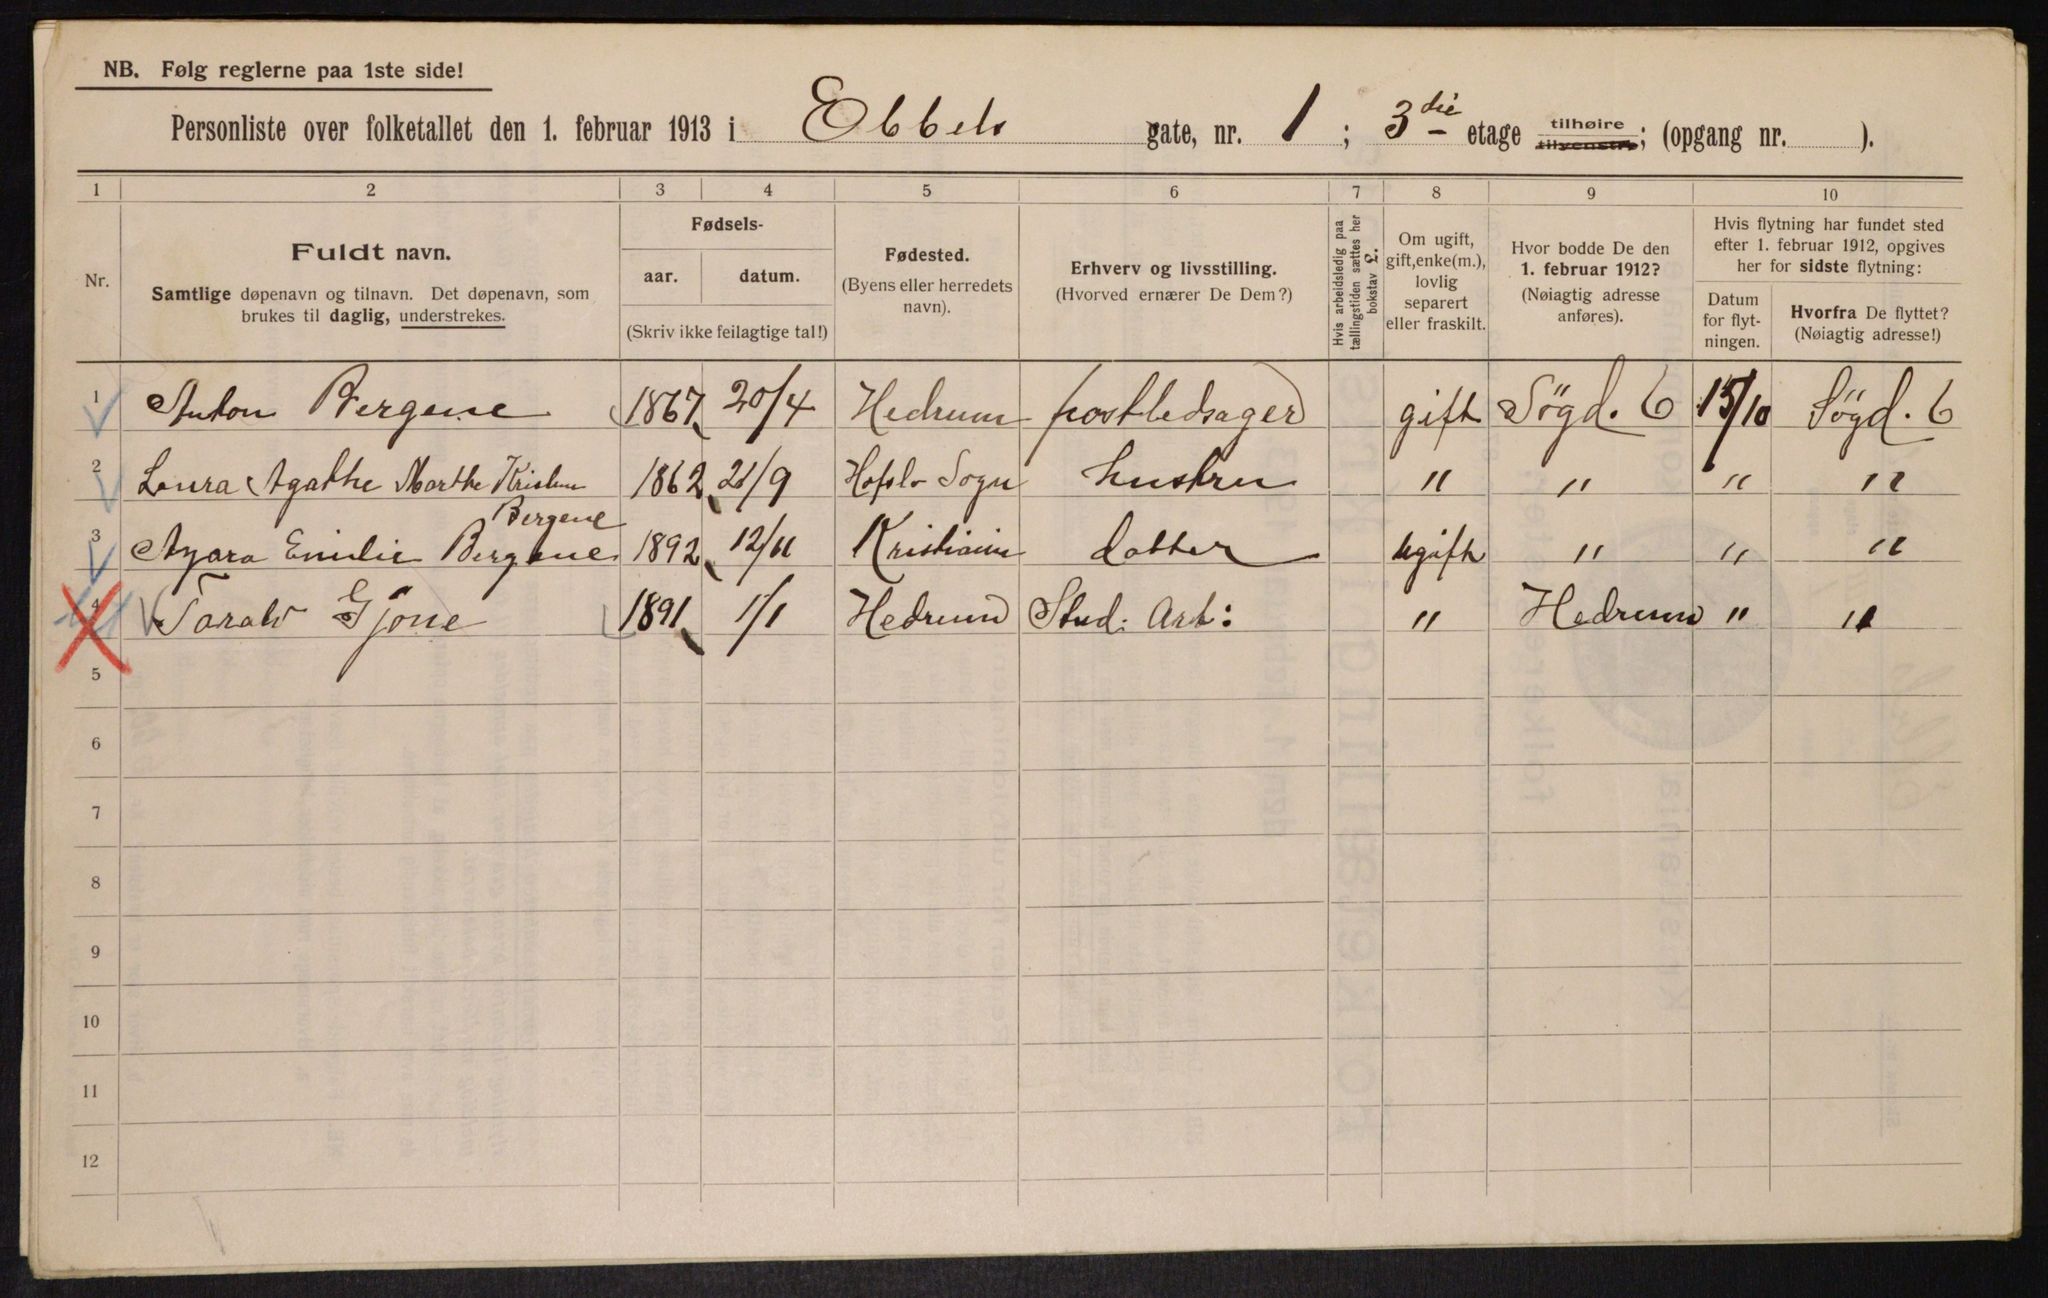 NB. Følg reglerne paa 1ste side!
Personliste over folketallet den 1. februar 1913 i Ebbels gate, nr. 1; 3die etage tilhøire tilvenstre; (opgang nr. ).
1 2 3 4 5 6 7 8 9 10
Nr.
Fuldt navn.
Samtlige døpenavn og tilnavn. Det døpenavn, som
brukes til daglig, understrekes.
Fødsels-
aar. datum.
(Skriv ikke feilagtige tal!)
Fødested.
(Byens eller herredets
navn).
Erhverv og livsstilling.
(Hvorved ernærer De Dem?)
Hvis arbeidsledig paa
tællingstiden sættes her
bokstav L.
Om ugift,
gift, enke(m.),
lovlig
separert
eller fraskilt.
Hvor bodde De den
1. februar 1912?
(Nøiagtig adresse
anføres).
Hvis flytning har fundet sted
efter 1. februar 1912, opgives
her for sidste flytning:
Datum
for flyt-
ningen.
Hvorfra De flyttet?
(Nøiagtig adresse!)
1 Anton Bergene 1867 20/4 Hedrum postledsager gift Søgd. 6 15/10 Søgd. 6
2 Laura Agathe Marthe 1862 /9 Sogn hustru " " " "
Bergene
3 Emilie Bergene 1892 12/11 Kristiania datter ugift " " "
4 Gjone 1891 1/1 Hedrum Stud. Art: " Hedrum " "
5
6
7
8
9
10
11
12